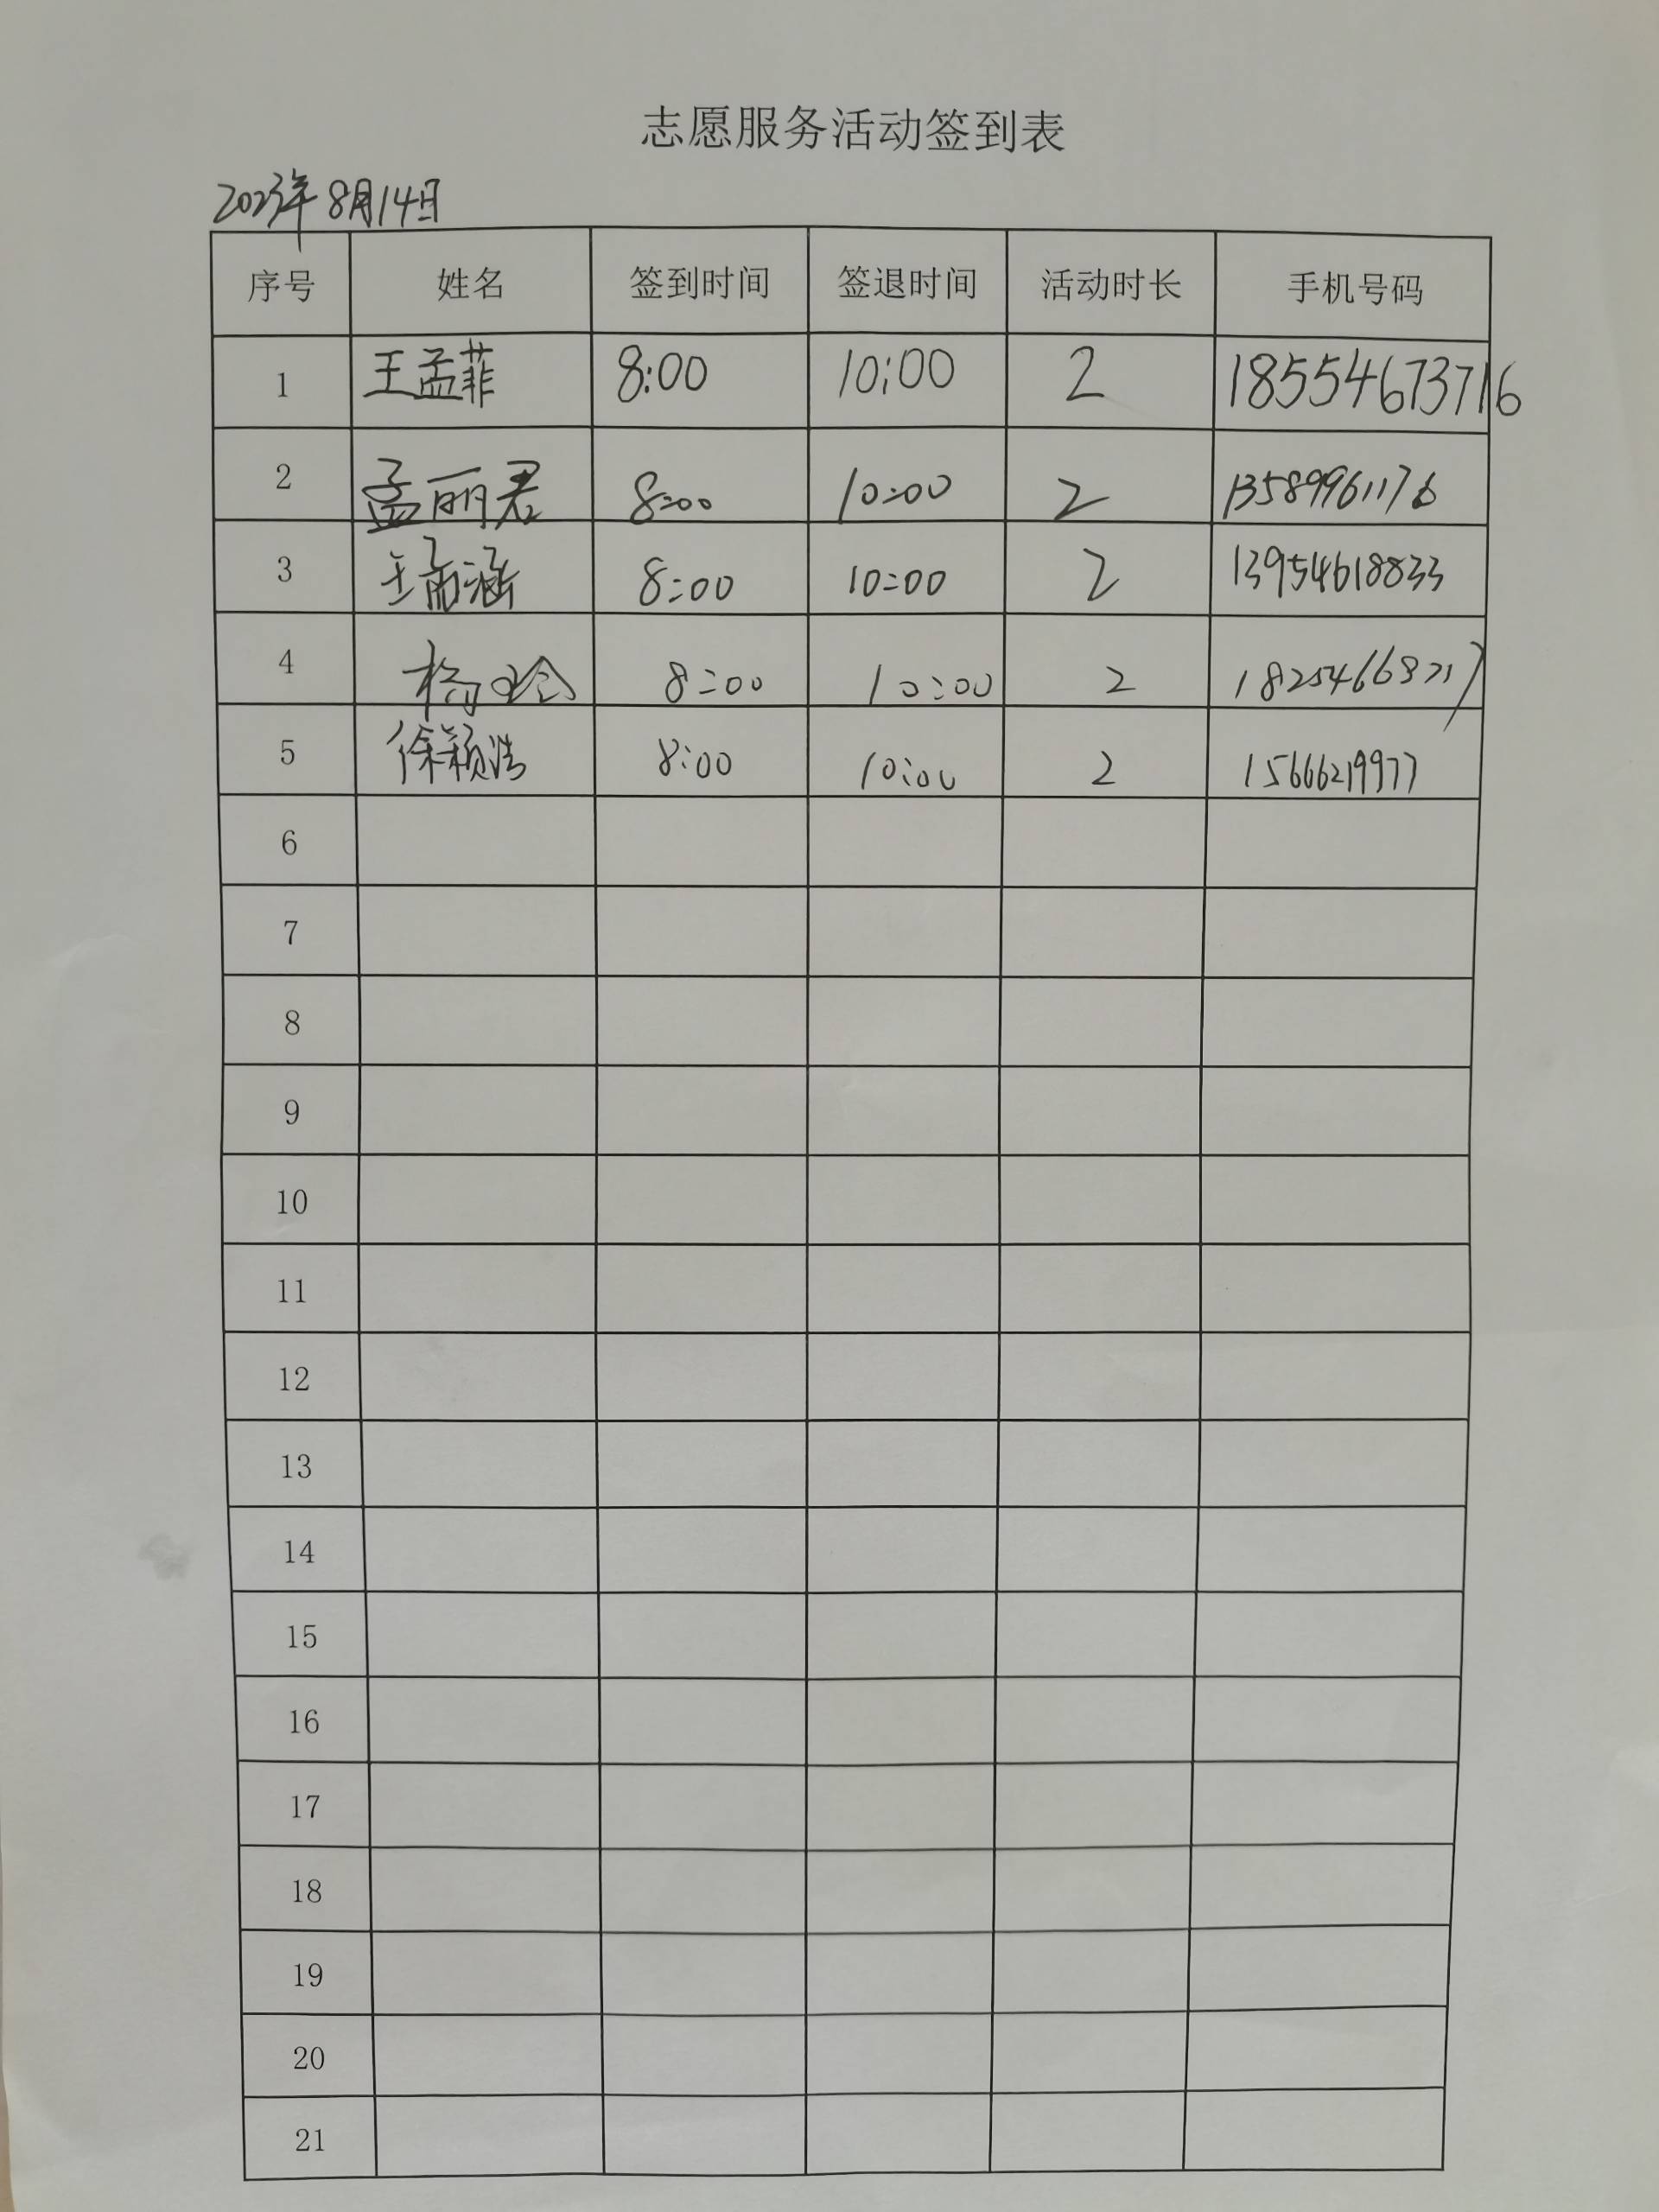 志愿服务活动签到表
2023年8月14日
序号 姓名 签到时间 签退时间 活动时长 手机号码
1 王孟菲 8:00 10:00 2 18554673716
2 孟丽君 8:00 10:00 2 13589961176
3 王雨涵 8:00 10:00 2 13954618833
4 杨 8:00 10:00 2
5 徐颖浩 8:00 10:00 2 15666219977
6
7
8
9
10
11
12
13
14
15
16
17
18
19
20
21